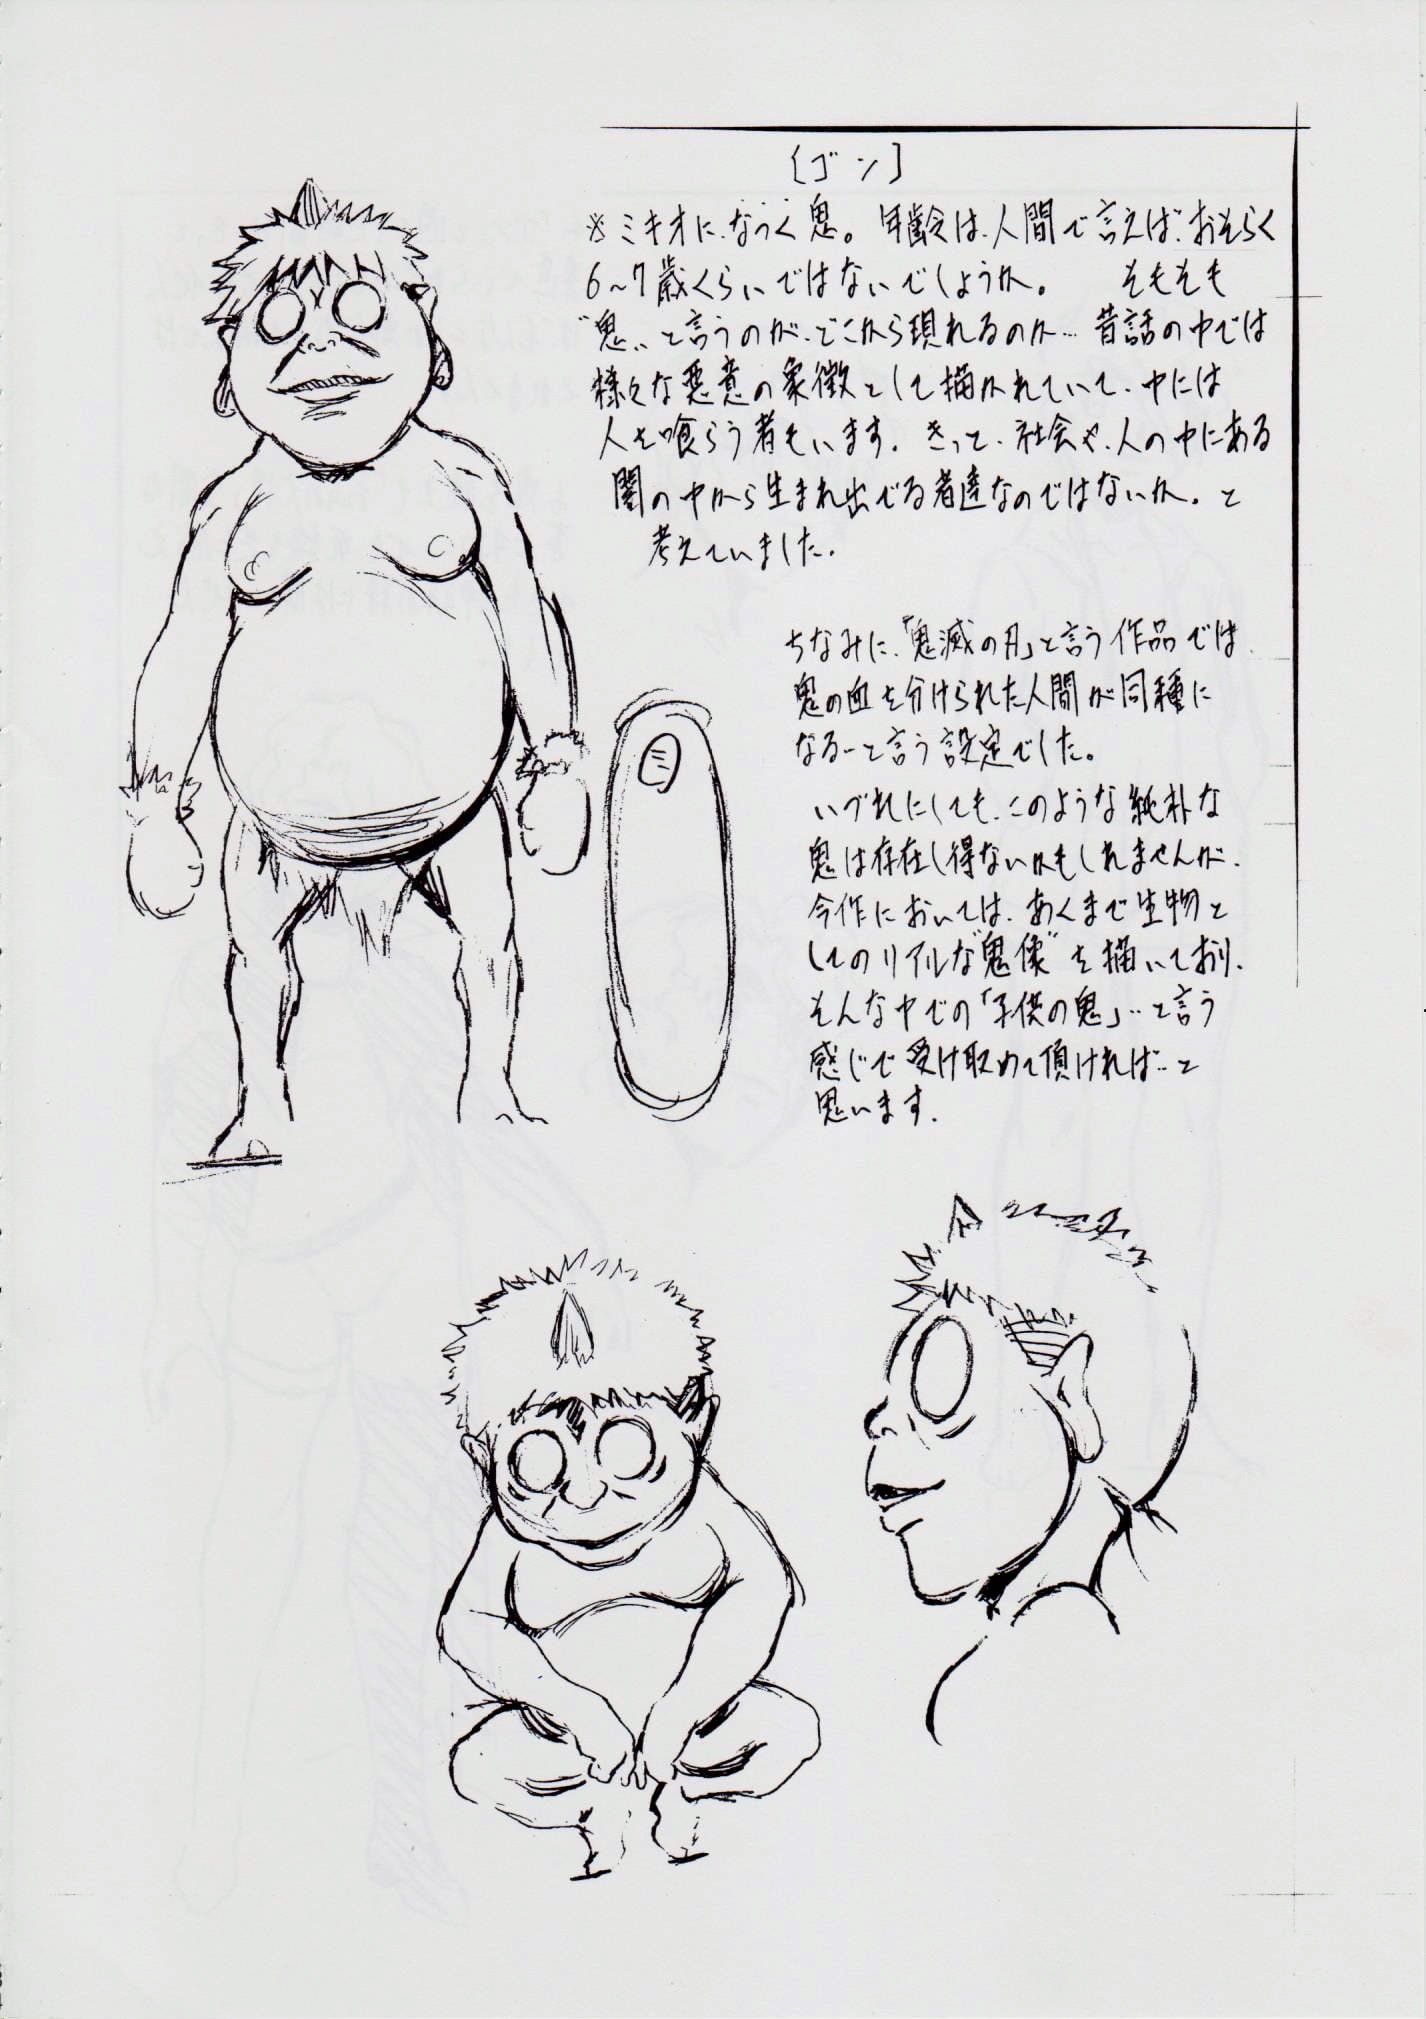 〔ゴン〕
※ミキオに、なつく鬼。年齢は、人間で言えば、おそらく
6〜7歳くらいではないでしょうか。 そもそも
"鬼"と言うのが、どこから現れるのか…昔話の中では
様々な悪意の象徴として描かれていて、中には
人を喰らう者もいます。きっと、社会や、人の中にある
闇の中から生まれ出でる者達なのではないか。と
考えていました。
ちなみに、「鬼滅の刃」と言う作品では、
鬼の血を分けられた人間が同種に
なる…と言う設定でした。
いづれにしても、このような純朴な
鬼は存在し得ないかもしれませんが、
今作においては、あくまで生物と
してのリアルな"鬼像"を描いており、
そんな中での「子供の鬼」…と言う
感じで受け取めて頂ければ…と
思います。